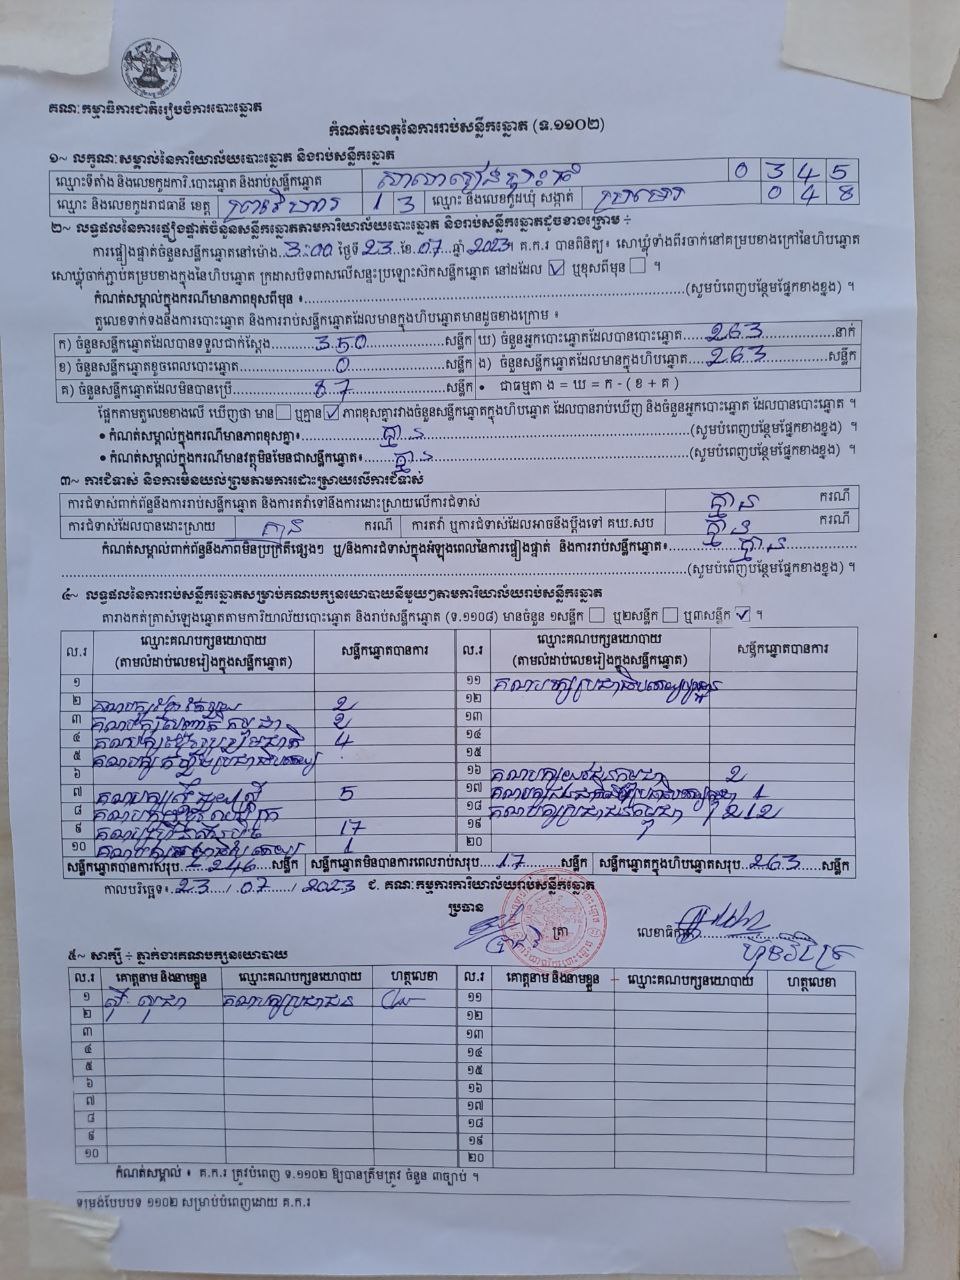 គណៈកម្មាធិការជាតិរៀបចំការបោះឆ្នោត
កំណត់ហេតុនៃការរាប់សន្លឹកឆ្នោត (ទ.១១០២)
១~ លក្ខណៈសម្គាល់នៃការិយាល័យបោះឆ្នោត និងរាប់សន្លឹកឆ្នោត
ឈ្មោះទីតាំង និងលេខកូដការិ.បោះឆ្នោត និងរាប់សន្លឹកឆ្នោត 0 3 4 5
ឈ្មោះ និងលេខកូដរាជធានី ខេត្ត ព្រះវិហារ 1 3 ឈ្មោះ និងលេខកូដឃុំ សង្កាត់ 0 4 8
២~ លទ្ធផលនៃការផ្ទៀងផ្ទាត់ចំនួនសន្លឹកឆ្នោតតាមការិយាល័យបោះឆ្នោត និងរាប់សន្លឹកឆ្នោតដូចខាងក្រោម ÷
ការផ្ទៀងផ្ទាត់ចំនួនសន្លឹកឆ្នោតនៅម៉ោង 3:00 ថ្ងៃទី 23 ខែ 07 ឆ្នាំ 2023។ គ.ក.រ បានពិនិត្យ៖ សោឃ្លុំទាំងពីរចាក់នៅគម្របខាងក្រៅនៃហិបឆ្នោត
សោឃ្លុំចាក់ភ្ជាប់គម្របខាងក្នុងនៃហិបឆ្នោត ក្រដាសបិទពាសលើសន្ទះប្រឡោះស៊កសន្លឹកឆ្នោត នៅដដែល ☑ ឬខុសពីមុន ☐ ។
កំណត់សម្គាល់ក្នុងករណីមានភាពខុសពីមុន ៖ (សូមបំពេញបន្ថែមផ្នែកខាងខ្នង) ។
តួលេខទាក់ទងនឹងការបោះឆ្នោត និងការរាប់សន្លឹកឆ្នោតដែលមានក្នុងហិបឆ្នោតមានដូចខាងក្រោម ៖
ក) ចំនួនសន្លឹកឆ្នោតដែលបានទទួលជាក់ស្តែង 350 សន្លឹក ឃ) ចំនួនអ្នកបោះឆ្នោតដែលបានបោះឆ្នោត 263 នាក់
ខ) ចំនួនសន្លឹកឆ្នោតខូចពេលបោះឆ្នោត 0 សន្លឹក ង) ចំនួនសន្លឹកឆ្នោតដែលមានក្នុងហិបឆ្នោត 263 សន្លឹក
គ) ចំនួនសន្លឹកឆ្នោតដែលមិនបានប្រើ 87 សន្លឹក • ជាធម្មតា ង = ឃ = ក - ( ខ + គ )
ផ្អែកតាមតួលេខខាងលើ ឃើញថា មាន ☐ ឬគ្មាន ☑ ភាពខុសគ្នារវាងចំនួនសន្លឹកឆ្នោតក្នុងហិបឆ្នោត ដែលបានរាប់ឃើញ និងចំនួនអ្នកបោះឆ្នោត ដែលបានបោះឆ្នោត ។
• កំណត់សម្គាល់ក្នុងករណីមានភាពខុសគ្នា៖ គ្មាន (សូមបំពេញបន្ថែមផ្នែកខាងខ្នង) ។
• កំណត់សម្គាល់ក្នុងករណីមានវត្ថុមិនមែនជាសន្លឹកឆ្នោត៖ គ្មាន (សូមបំពេញបន្ថែមផ្នែកខាងខ្នង) ។
៣~ ការជំទាស់ និងការមិនយល់ព្រមតាមការដោះស្រាយលើការជំទាស់
ការជំទាស់ពាក់ព័ន្ធនឹងការរាប់សន្លឹកឆ្នោត និងការតវ៉ាទៅនឹងការដោះស្រាយលើការជំទាស់ គ្មាន ករណី
ការជំទាស់ដែលបានដោះស្រាយ គ្មាន ករណី ការតវ៉ា ឬការជំទាស់ដែលអាចនឹងប្តឹងទៅ គឃ.សប គ្មាន ករណី
កំណត់សម្គាល់ពាក់ព័ន្ធនឹងភាពមិនប្រក្រតីផ្សេងៗ ឬ/និងការជំទាស់ក្នុងអំឡុងពេលនៃការផ្ទៀងផ្ទាត់ និងការរាប់សន្លឹកឆ្នោត៖ គ្មាន
(សូមបំពេញបន្ថែមផ្នែកខាងខ្នង) ។
៤~ លទ្ធផលនៃការរាប់សន្លឹកឆ្នោតសម្រាប់គណបក្សនយោបាយនីមួយៗតាមការិយាល័យរាប់សន្លឹកឆ្នោត
តារាងកត់ត្រាសំឡេងឆ្នោតតាមការិយាល័យបោះឆ្នោត និងរាប់សន្លឹកឆ្នោត (ទ.១១០៨) មានចំនួន ១សន្លឹក ☐ ឬ២សន្លឹក ☐ ឬ៣សន្លឹក ☑ ។
ល.រ ឈ្មោះគណបក្សនយោបាយ (តាមលំដាប់លេខរៀងក្នុងសន្លឹកឆ្នោត) សន្លឹកឆ្នោតបានការ ល.រ ឈ្មោះគណបក្សនយោបាយ (តាមលំដាប់លេខរៀងក្នុងសន្លឹកឆ្នោត) សន្លឹកឆ្នោតបានការ
១ ១១
២ 2 ១២
៣ 2 ១៣
៤ 4 ១៤
៥ ១៥
៦ ១៦ 2
៧ 5 ១៧ 1
៨ ១៨ គណបក្សប្រជាជនកម្ពុជា 212
៩ 17 ១៩
១០ 1 ២០
សន្លឹកឆ្នោតបានការសរុប 246 សន្លឹក សន្លឹកឆ្នោតមិនបានការពេលរាប់សរុប 17 សន្លឹក សន្លឹកឆ្នោតក្នុងហិបឆ្នោតសរុប 263 សន្លឹក
កាលបរិច្ឆេទ៖ 23 / 07 / 2023 ជ. គណៈកម្មការការិយាល័យរាប់សន្លឹកឆ្នោត
ប្រធាន ត្រា លេខាធិការ
៥~ សាក្សី ÷ ភ្នាក់ងារគណបក្សនយោបាយ
ល.រ គោត្តនាម និងនាមខ្លួន ឈ្មោះគណបក្សនយោបាយ ហត្ថលេខា ល.រ គោត្តនាម និងនាមខ្លួន ឈ្មោះគណបក្សនយោបាយ ហត្ថលេខា
១ គណបក្សប្រជាជន ១១
២ ១២
៣ ១៣
៤ ១៤
៥ ១៥
៦ ១៦
៧ ១៧
៨ ១៨
៩ ១៩
១០ ២០
កំណត់សម្គាល់ ៖ គ.ក.រ ត្រូវបំពេញ ទ.១១០២ ឱ្យបានត្រឹមត្រូវ ចំនួន ៣ច្បាប់ ។
ទម្រង់បែបបទ ១១០២ សម្រាប់បំពេញដោយ គ.ក.រ